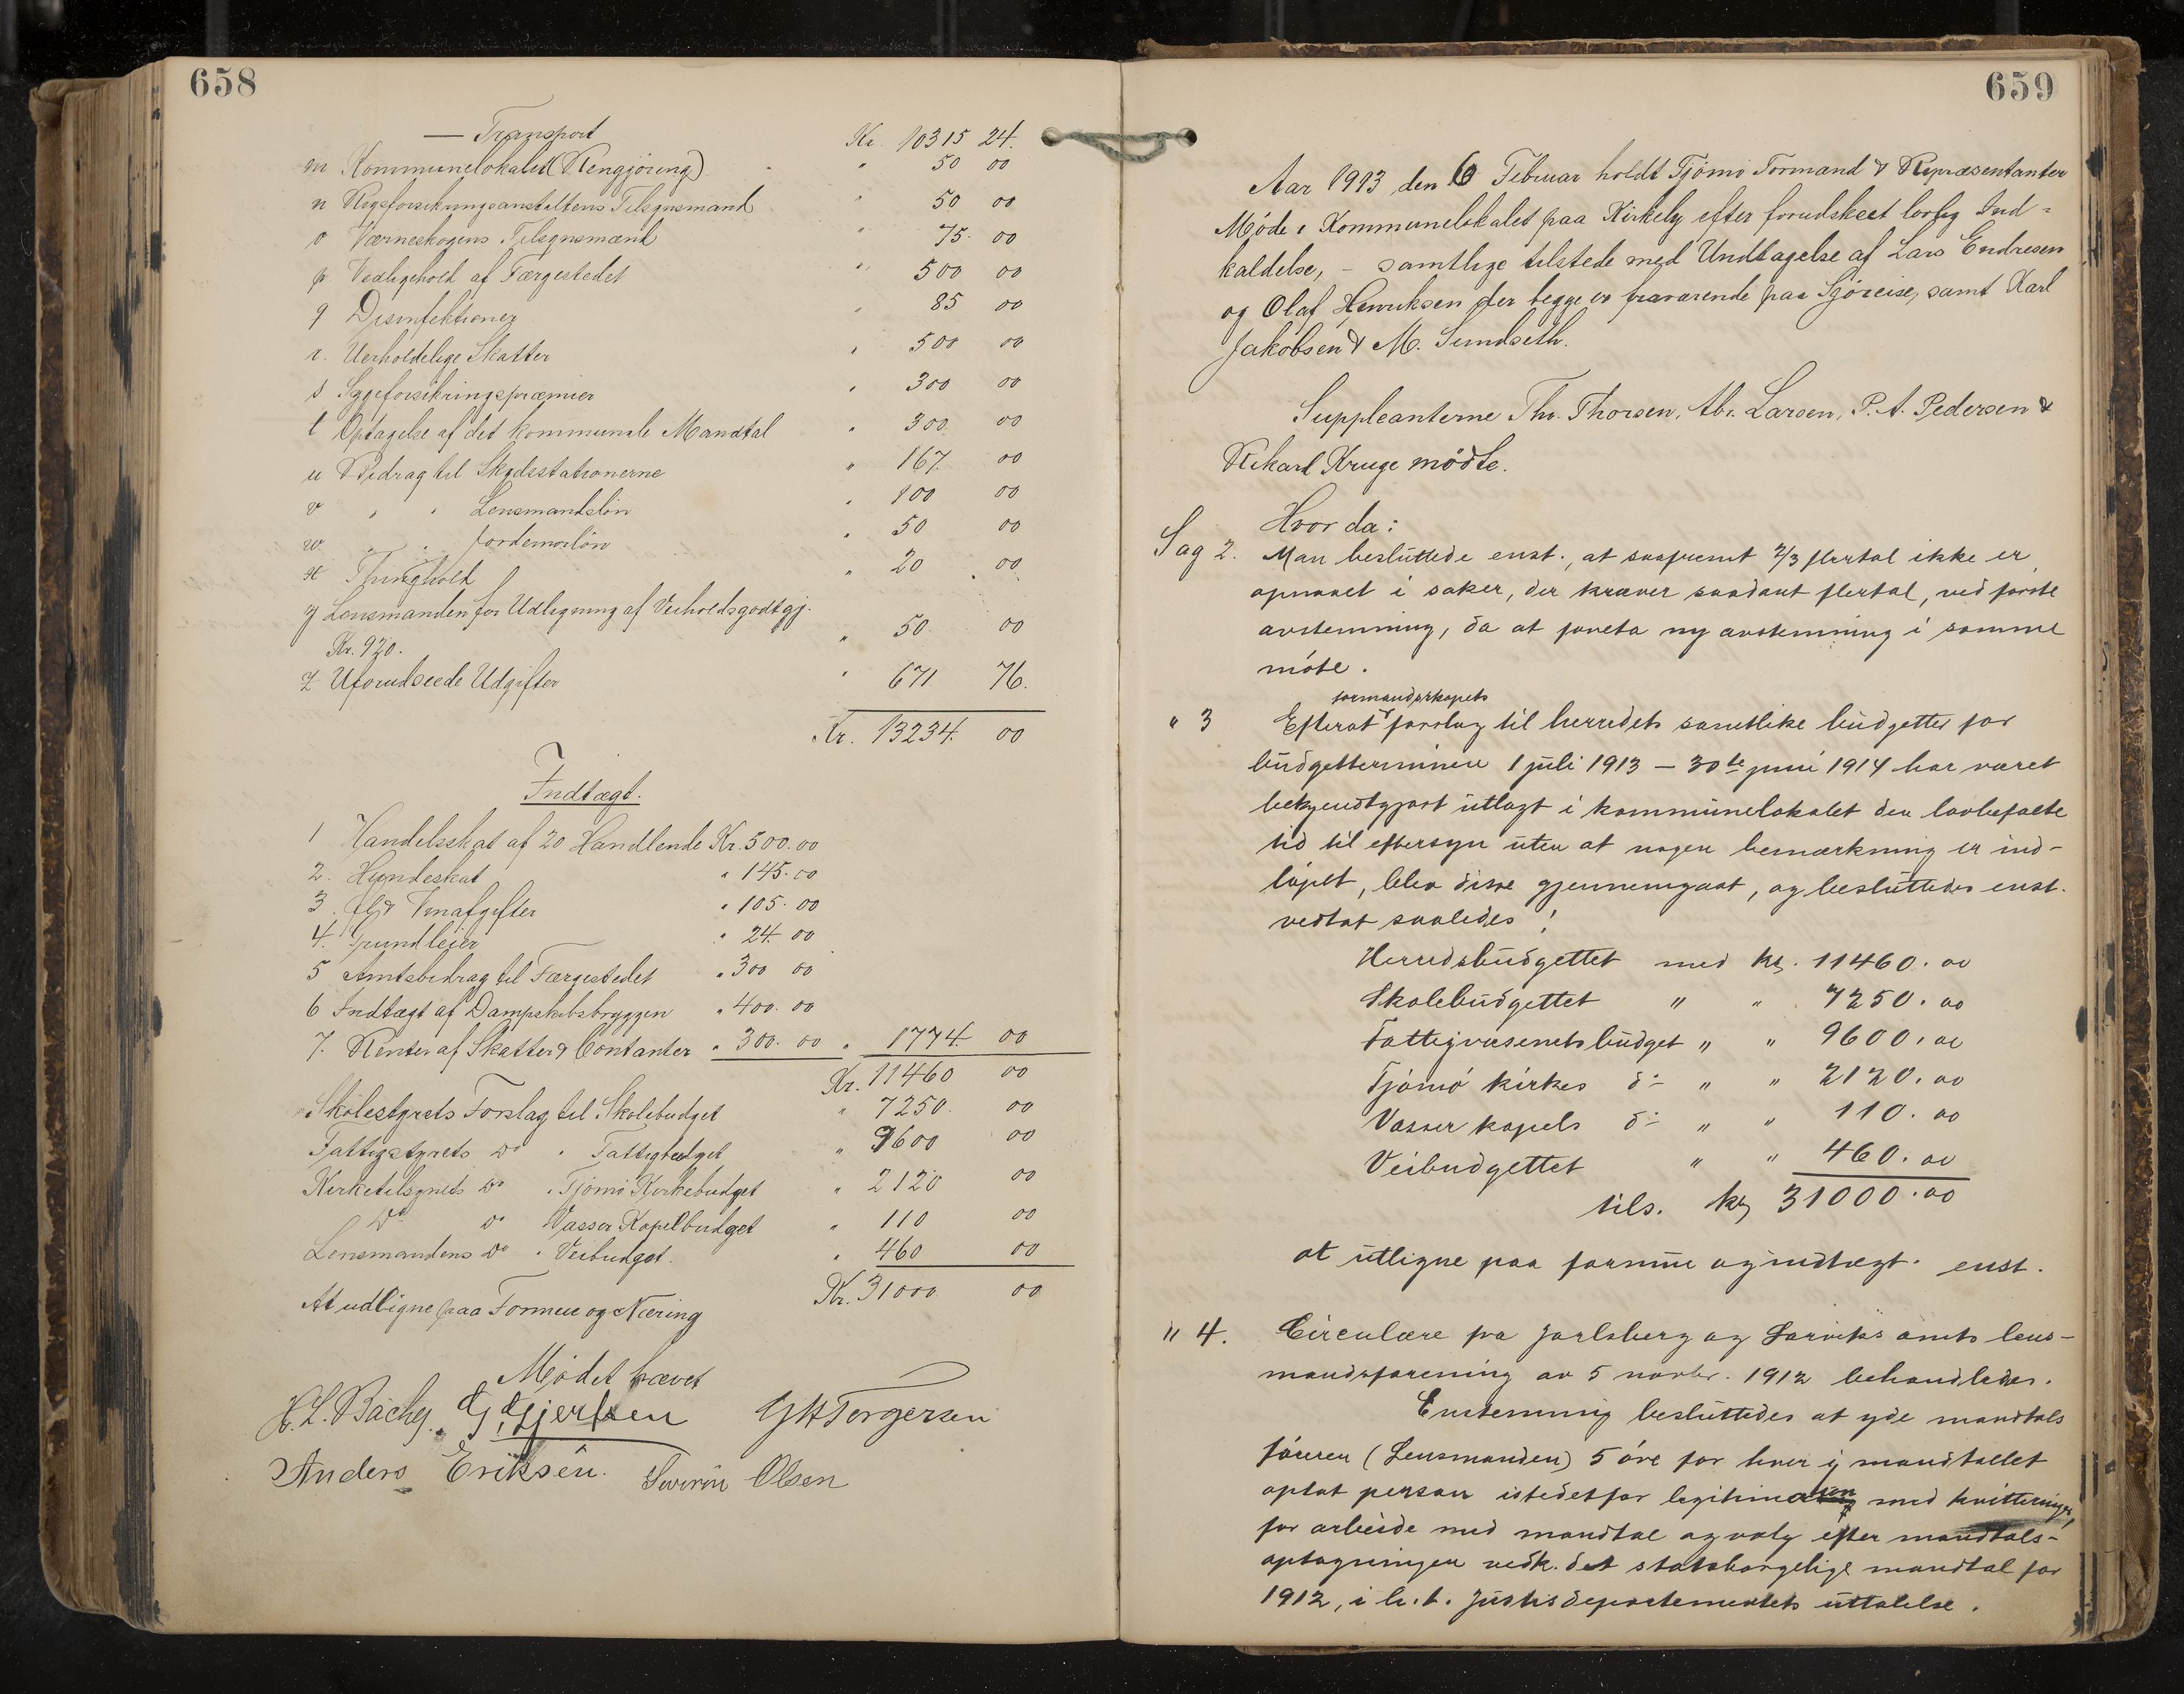 658
— Transport Kr. 10315 24.
m Kommunelokalet (Rengjøring) " 50 00
n Rigsforsikringsanstaltens Tilsynsmand " 50 00
o Værneskogens Tilsynsmænd " 75. 00
p Vedligehold af Færgestedet " 500 00
q Disinfektioner " 85 00
r. Uerholdelige Skatter " 500 00
s Sygeforsikringspræmier " 300 00
t Optagelse af det kommunale Mandtal " 300. 00
u Bidrag til Skydsstationerne " 167. 00
v " " Lensmandsløn " 100 00
w. " " Jordemorløn " 50 00
x Thinghold " 20 00
y Lensmanden for Udligning af Veiholdsgodtgj.
Kr. 920. " 50. 00
z Uforudseede Udgifter " 671 76.
Kr. 13234. 00
Indtægt.
1 Handelsskat af 20 Handlende Kr. 500.00
2. Hundeskat " 145.00
3. Øl & Vinafgifter " 105.00
4. Grundleier " 24.00
5 Amtsbidrag til Færgestedet " 300 00
6 Indtægt af Dampskibsbryggen " 400.00
7. Renter af Skatter & Contanter " 300.00 " 1774. 00
Kr. 11460 00
Skolestyrets Forslag til Skolebudget " 7250. 00
Fattigstyrets Do " Fattigbudget " 9600 00
Kirketilsynets Do " Tjømø Kirkebudget " 2120 00
Do Do Vasser Kapelbudget " 110 00
Lensmandens Do " Veibudget. " 460 00
At udligne paa Formue og Næring Kr. 31000. 00
Mødet hævet
H. L. Bache. G. Gjertsen GHTorgersen
Anders Eriksen. Severin Olsen
659
Aar 1913 den 6 Februar holdt Tjømø Formand & Repræsentanter
Møde i Kommunelokalet paa Kirkely efter forudskeet lovlig Ind=
kaldelse, – samtlige tilstede med Undtagelse af Lars Endresen
og Olaf Henriksen der begge er fraværende paa Sjøreise, samt Karl
Jakobsen & M. Sundseth.
Suppleanterne Thv. Thorsen, Abr. Larsen, P. A. Pedersen &
Rikard Kruge mødte.
Hvor da:
Sag 2. Man besluttede enst., at saafremt 2/3 flertal ikke er
opnaaet i saker, der kræver saadant flertal, ved første
avstemning, da at foreta ny avstemning i samme
møte.
formandskapets
" 3 Efterat forslag til herredets samtlike budgetter for
budgetterminen 1 juli 1913 – 30te juni 1914 har været
bekjendtgjort utlagt i kommunelokalet den lovbefalte
tid til eftersyn uten at nogen bemærkning er ind-
løpet, blev disse gjennemgaat, og besluttedes enst.
vedtat saaledes:
Herredsbudgettet med kr. 11460.00
Skolebudgettet " " 7250.00
Fattigvæsenets budget " " 9600.00
Tjømø kirkes do " " 2120.00
Vasser kapels do " " 110.00
Veibudgettet " " 460.00
tils. kr 31000.00
at utligne paa formue og indtægt. enst.
" 4. Circulære fra Jarlsberg og Larviks amts lens-
mandsforening av 5 novbr. 1912 behandledes.
Enstemmig besluttedes at yde mandtals
føreren (Lensmanden) 5 øre for hver i mandtallet
optat person istedetfor legitimation med kvitteringer,
for arbeide med mandtal og valg efter mandtals-
optagningen vedk. det statsborgelige mandtal for
1912, i h.t. Justisdepartementets uttalelse.